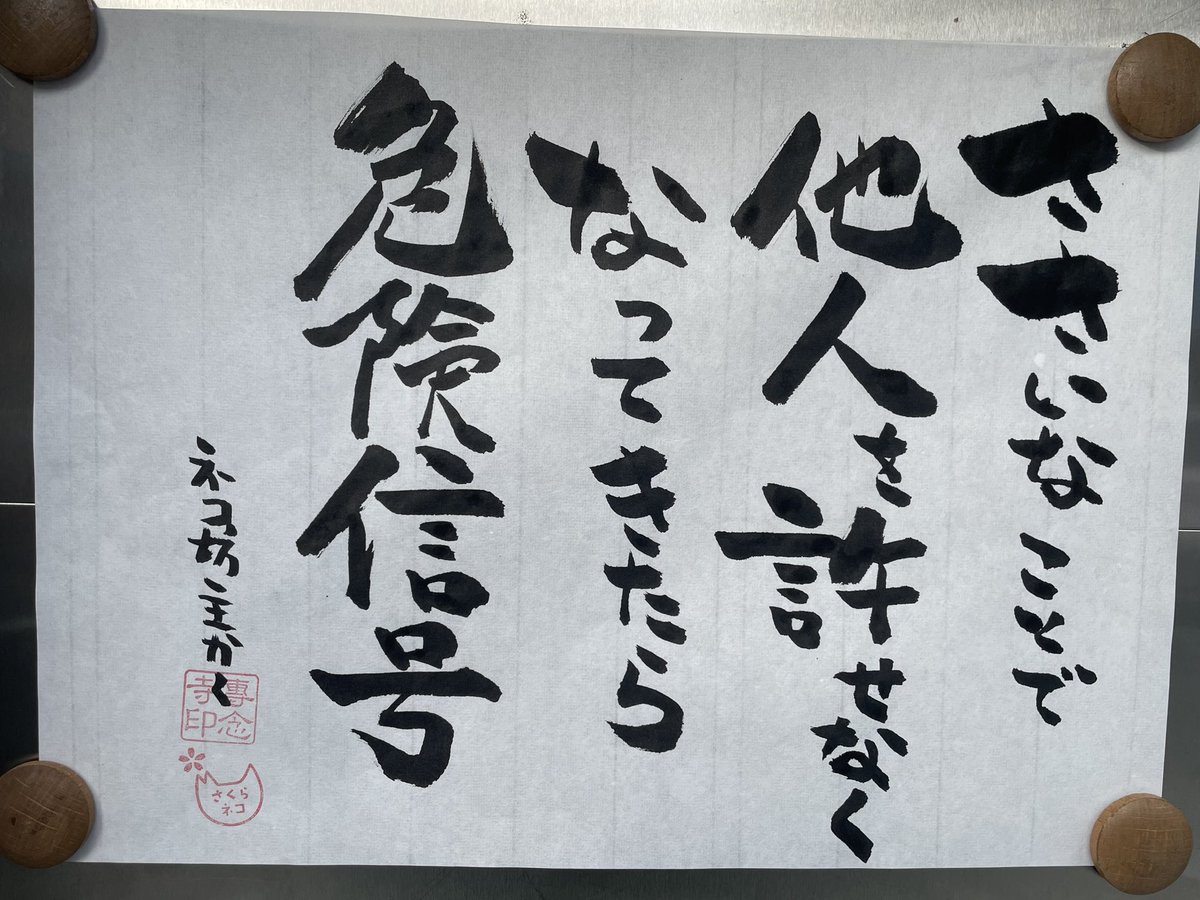 ささいなことで
他人を許せなく
なってきたら
危険信号
ネコ坊主かく
專念寺印
さくらネコ